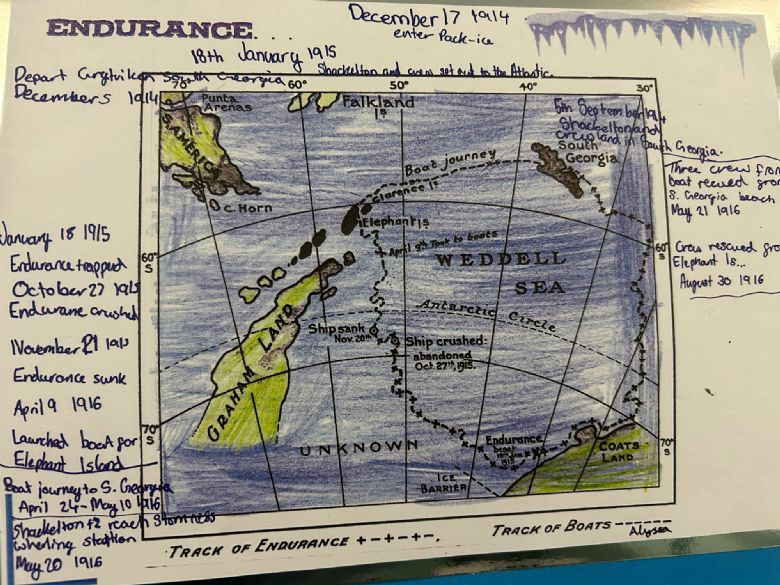 ENDURANCE...
December 17 1914
enter Pack-ice
18th January 1915
Depart South Georgia
December 5 1914
Shackelton and crew set out to the Atlantic.
70°
60°
50°
40°
30°
Punta
Arenas
Falkland
Is
S. AMERICA
C. Horn
5th September 1914
Shackelton and
crew land in South Georgia.
South
Georgia
Boat journey
Clarence Is
Elephant Is
April 9th Took to boats
WEDDELL
SEA
Antarctic Circle
60°
S
60°
S
GRAHAM LAND
Ship sank
Nov. 20th
Ship crushed:
abandoned
Oct. 27th, 1915.
UNKNOWN
Endurance
beset
1915
ICE
BARRIER
COATS
LAND
70°
S
70°
S
TRACK OF ENDURANCE +-+-+-.
TRACK OF BOATS ------
Alyssa
January 18 1915
Endurance trapped
October 27 1915
Endurane crushed
November 21 1915
Endurance sunk
April 9 1916
Launched boat for
Elephant Island
Boat journey to S. Georgia
April 24-May 10 1916
Shackelton + 2 reach Stormness
station
May 20 1916
Three crew from
boat rescued
S. Georgia beach
May 21 1916
Crew rescued
Elephant Is...
August 30 1916